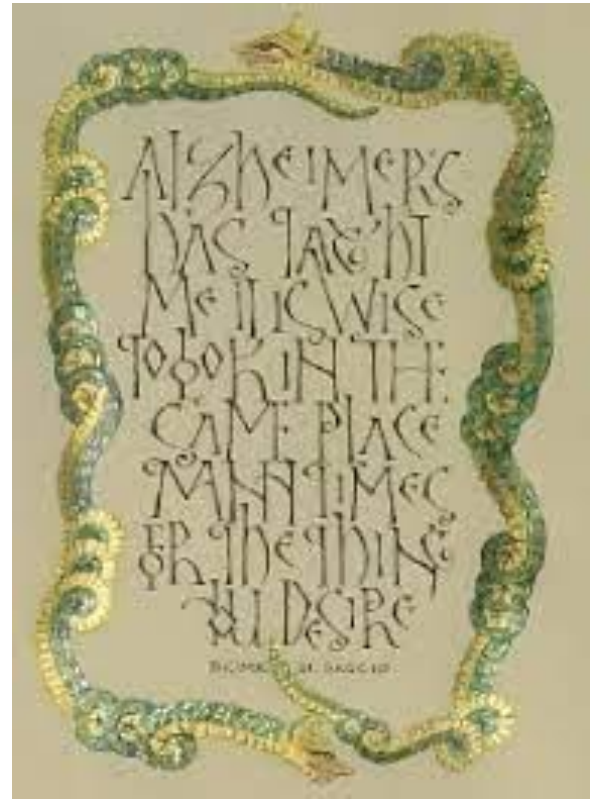 Alzheimer's
has taught
Me it is Wise
to look in the
same place
many times
for the thing
you desire